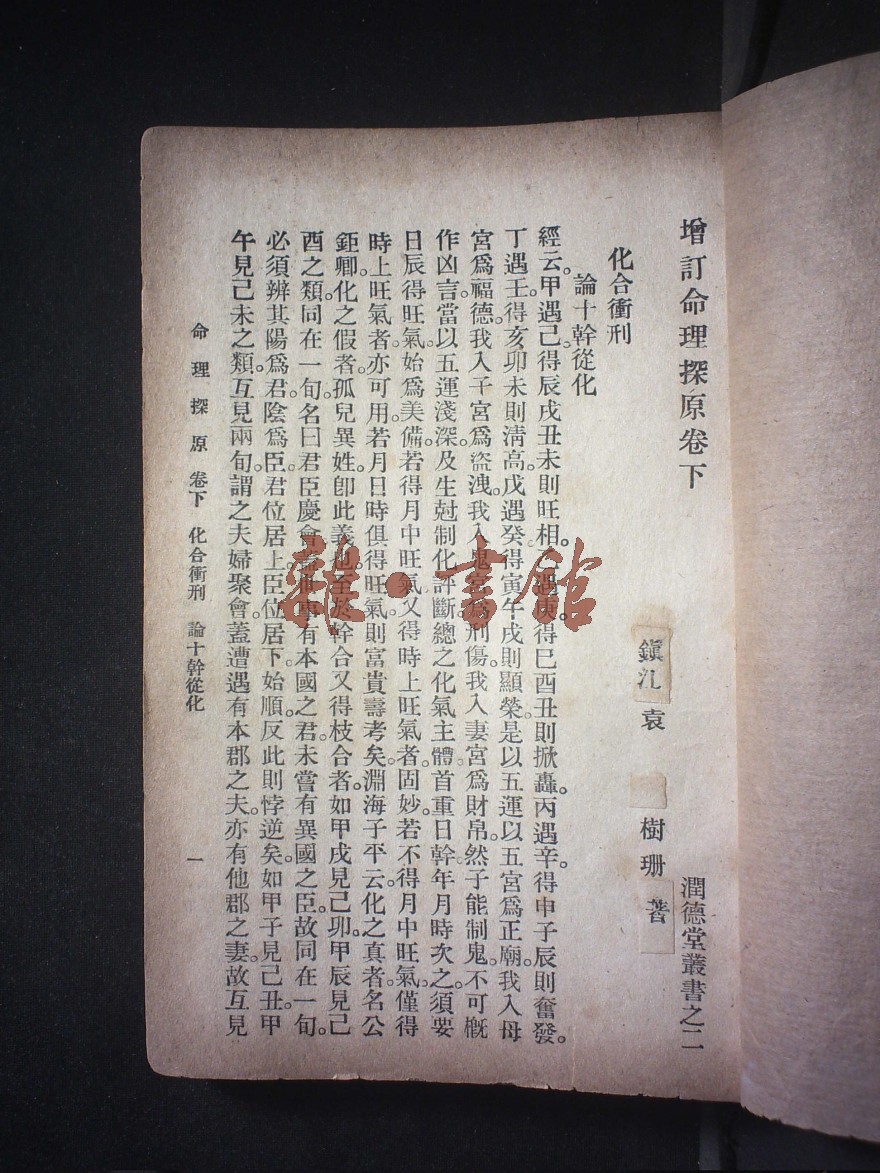 增訂命理探原卷下
潤德堂叢書之二
鎭江 袁 樹珊 著
化合衝刑
論十幹從化
經云。甲遇己。得辰戌丑未則旺相。乙遇庚。得巳酉丑則掀轟。丙遇辛。得申子辰則奮發。
丁遇壬。得亥卯未則淸高。戊遇癸。得寅午戌則顯榮。是以五運以五宮爲正廟。我入母
宮爲福德。我入子宮爲盜洩。我入鬼宮爲刑傷。我入妻宮爲財帛。然子能制鬼。不可槪
作凶言。當以五運淺深。及生尅制化評斷。總之化氣主體。首重日幹。年月時次之。須要
日辰得旺氣。始爲美備。若得月中旺氣。又得時上旺氣者。固妙。若不得月中旺氣。僅得
時上旺氣者。亦可用。若月日時俱得旺氣。則富貴壽考矣。淵海子平云。化之真者。名公
鉅卿。化之假者。孤兒異姓。卽此義也。至於幹合又得枝合者。如甲戌見己卯。甲辰見己
酉之類。同在一旬。名曰君臣慶會。有本國之君。未嘗有異國之臣。故同在一旬。
必須辨其陽爲君。陰爲臣。君位居上。臣位居下。始順。反此則悖逆矣。如甲子見己丑。甲
午見己未之類。互見兩旬。謂之夫婦聚會。蓋遭遇有本郡之夫。亦有他郡之妻。故互見
命理探原 卷下 化合衝刑 論十幹從化
一
雜·書館